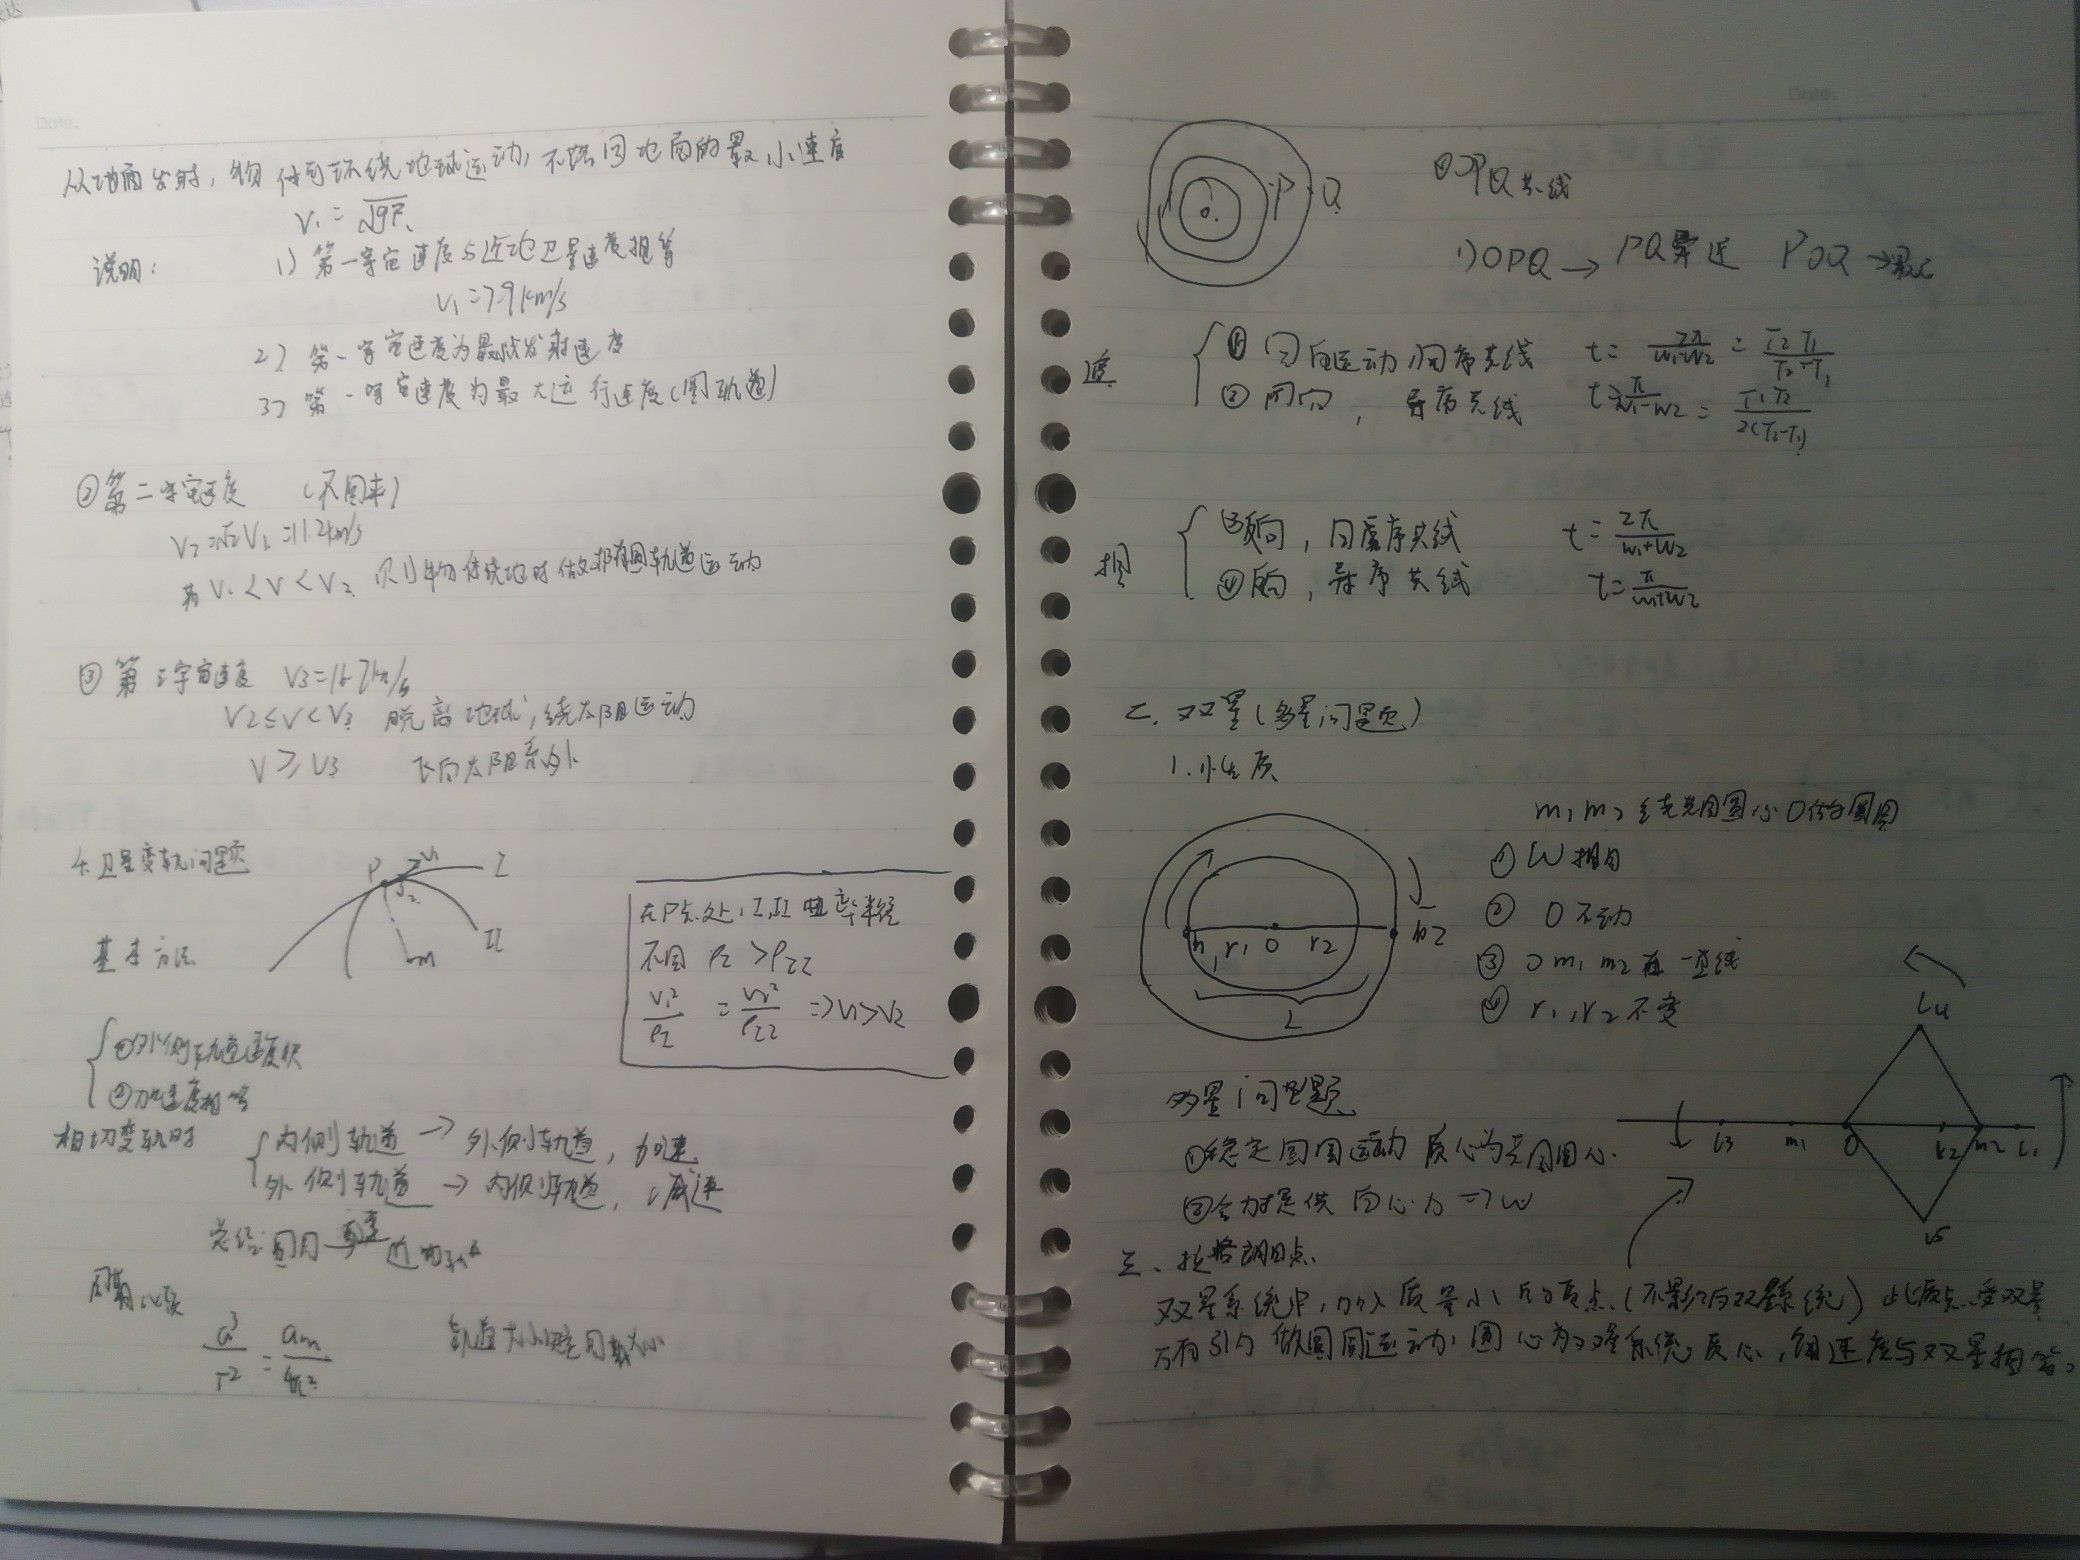 Date.
从地面发射，物体可环绕地球运动，不落回地面的最小速度
V₁=√gR
说明：
1) 第一宇宙速度与近地卫星速度相等
V₁=7.9km/s
2) 第一宇宙速度为最低发射速度
3) 第一宇宙速度为最大运行速度(圆轨道)
②第二宇宙速度 (不回来)
V₂=√2V₁=11.2km/s
若V₁<V<V₂ 则物体绕地时做椭圆轨道运动
③第三宇宙速度 V3=16.7km/s
V2≤V<V3 脱离地球，绕太阳运动
V≥V3 飞向太阳系外
4.卫星变轨问题
P V₁ I
V2
II
m
基本方法
在P点处，I,II曲率半径
不同 ρI>ρII
V₁²/ρI = V₂²/ρII ⇒V₁>V₂
①外侧轨道速度大
②加速度相等
相切变轨时
内侧轨道→外侧轨道，加速
外侧轨道→内侧轨道，减速
周期
a³/T²=Gm/4π²
Date.
O P Q
OPQ共线
1)OPQ→PQ最近 POQ→最远
追
① 同向运动，同序共线 t=2π/(W₁-W2)=T2T₁/(T2-T₁)
② 同向，异序共线 t=π/(W₁-W2)=T₁T2/2(T2-T₁)
相
③反向，同序共线 t=2π/(W₁+W2)
④反向，异序共线 t=π/(W₁+W2)
二.双星(多星问题)
1.性质
m₁m₂绕共同圆心O做圆周
m₁ r₁ O r2 m2
L
① W相同
② O不动
③ O m₁ m2在一直线
④ r₁,r2不变
多星问题
①稳定圆周运动 质心为共同圆心.
②合力提供向心力⇒W
L4
L3 m₁ O L2 m2 L₁
L5
三、拉格朗日点
双星系统中，加入质量小的质点(不影响双星系统) 此质点受双星
万有引力做圆周运动，圆心为双星系统质心，角速度与双星相等。